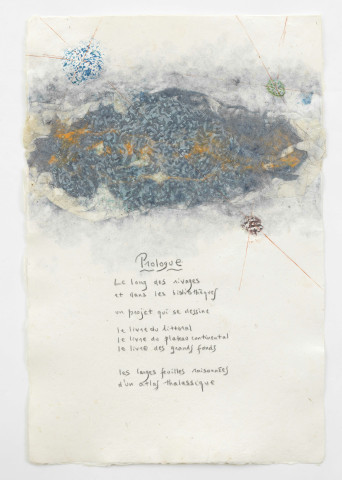 Prologue
Le long des rivages
et dans les bibliothèques
un projet qui se dessine
le livre du littoral
le livre du plateau continental
le livre des grands fonds
les larges feuilles
d'un atlas thalassique